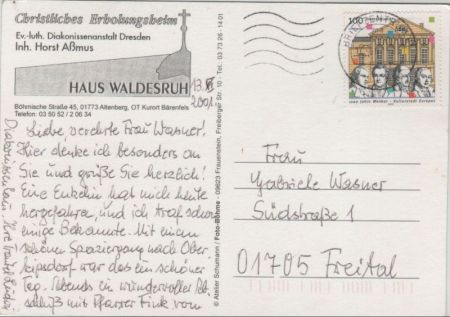 Christliches Erholungsheim
Ev.-luth. Diakonissenanstalt Dresden
Inh. Horst Aßmus
HAUS WALDESRUH
Böhmische Straße 45, 01773 Altenberg, OT Kurort Bärenfels
Telefon: 03 50 52 / 2 06 34
Liebe, verehrte Frau Wasner!
Hier denke ich besonders an
Sie und grüße Sie herzlich!
Eine Enkelin hat mich heute
hergefahren, und ich traf schon
einige Bekannte. Mit einem
schönen Spaziergang nach Ober-
kipsdorf war das ein schöner
Tag. Abends ein wundervoller Ab-
schluß mit Pfarrer Fink vom
© Atelier Schumann / Foto-Böhme · 09623 Frauenstein, Freiberger Str. 10 · Tel.: 03 73 26 - 14 01
100
BRIEFZENTRUM
1100 Jahre Weimar - Kulturstadt Europas
Frau
Gabriele Wasner
Südstraße 1
01705 Freital